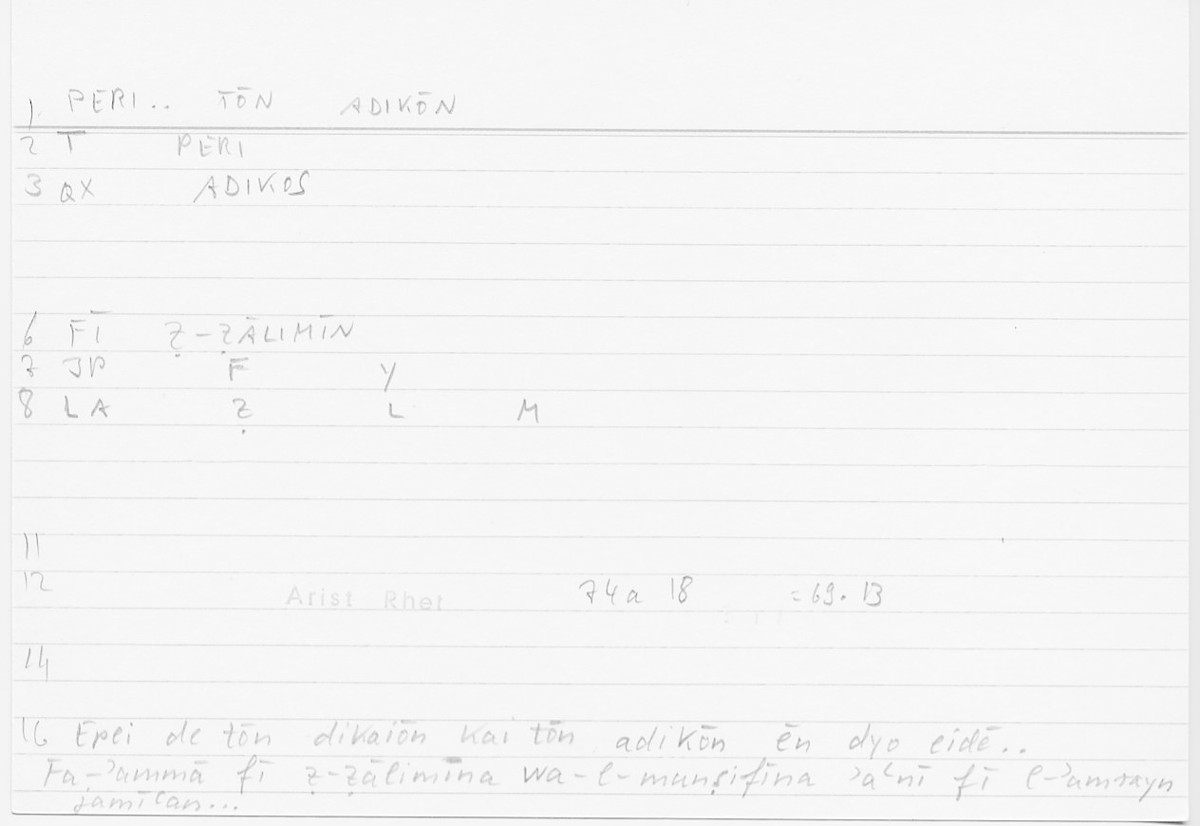 1. PERI.. TŌN ADIKŌN
2 T PERI
3 QX ADIKOS
6 FĪ Ẓ-ẒĀLIMĪN
7 JP F Y
8 LA Ẓ L M
11
12 Arist Rhet 74a 18 =69.13
14
16 Epei de tōn dikaiōn kai tōn adikōn ēn dyo eidē..
Fa-ʾammā fī ẓ-ẓālimīna wa-l-munṣifīna ʾaʿnī fī l-ʾamrayn
jamīʿan...